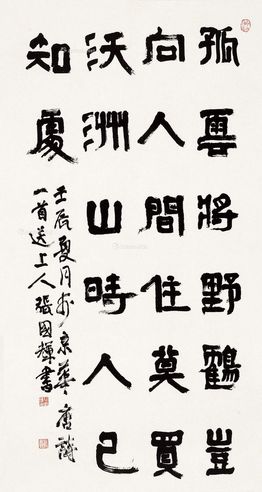 孤雲將野鶴豈
向人間住莫買
沃洲山時人已
知處
壬辰夏月於京華唐詩
一首送上人張國輝書